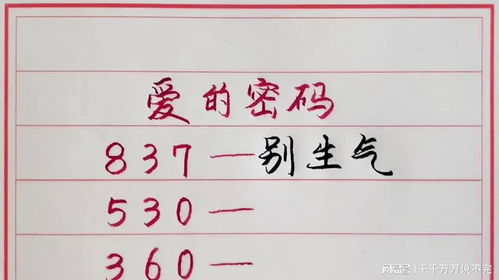 爱的密码
837—别生气
530—
360—
网易号 | 千千万万说不完